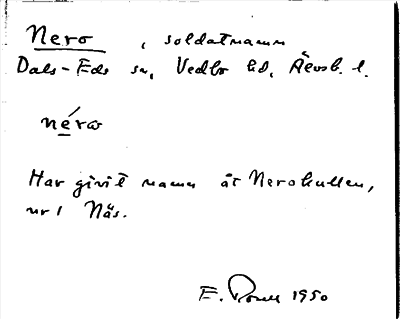 Nero, soldatnamn
Dals-Eds sn, Vedbo hd, Älvsb. l.
néro
Har givit namn åt Nerokullen,
nr 1 Näs.
E. 1950